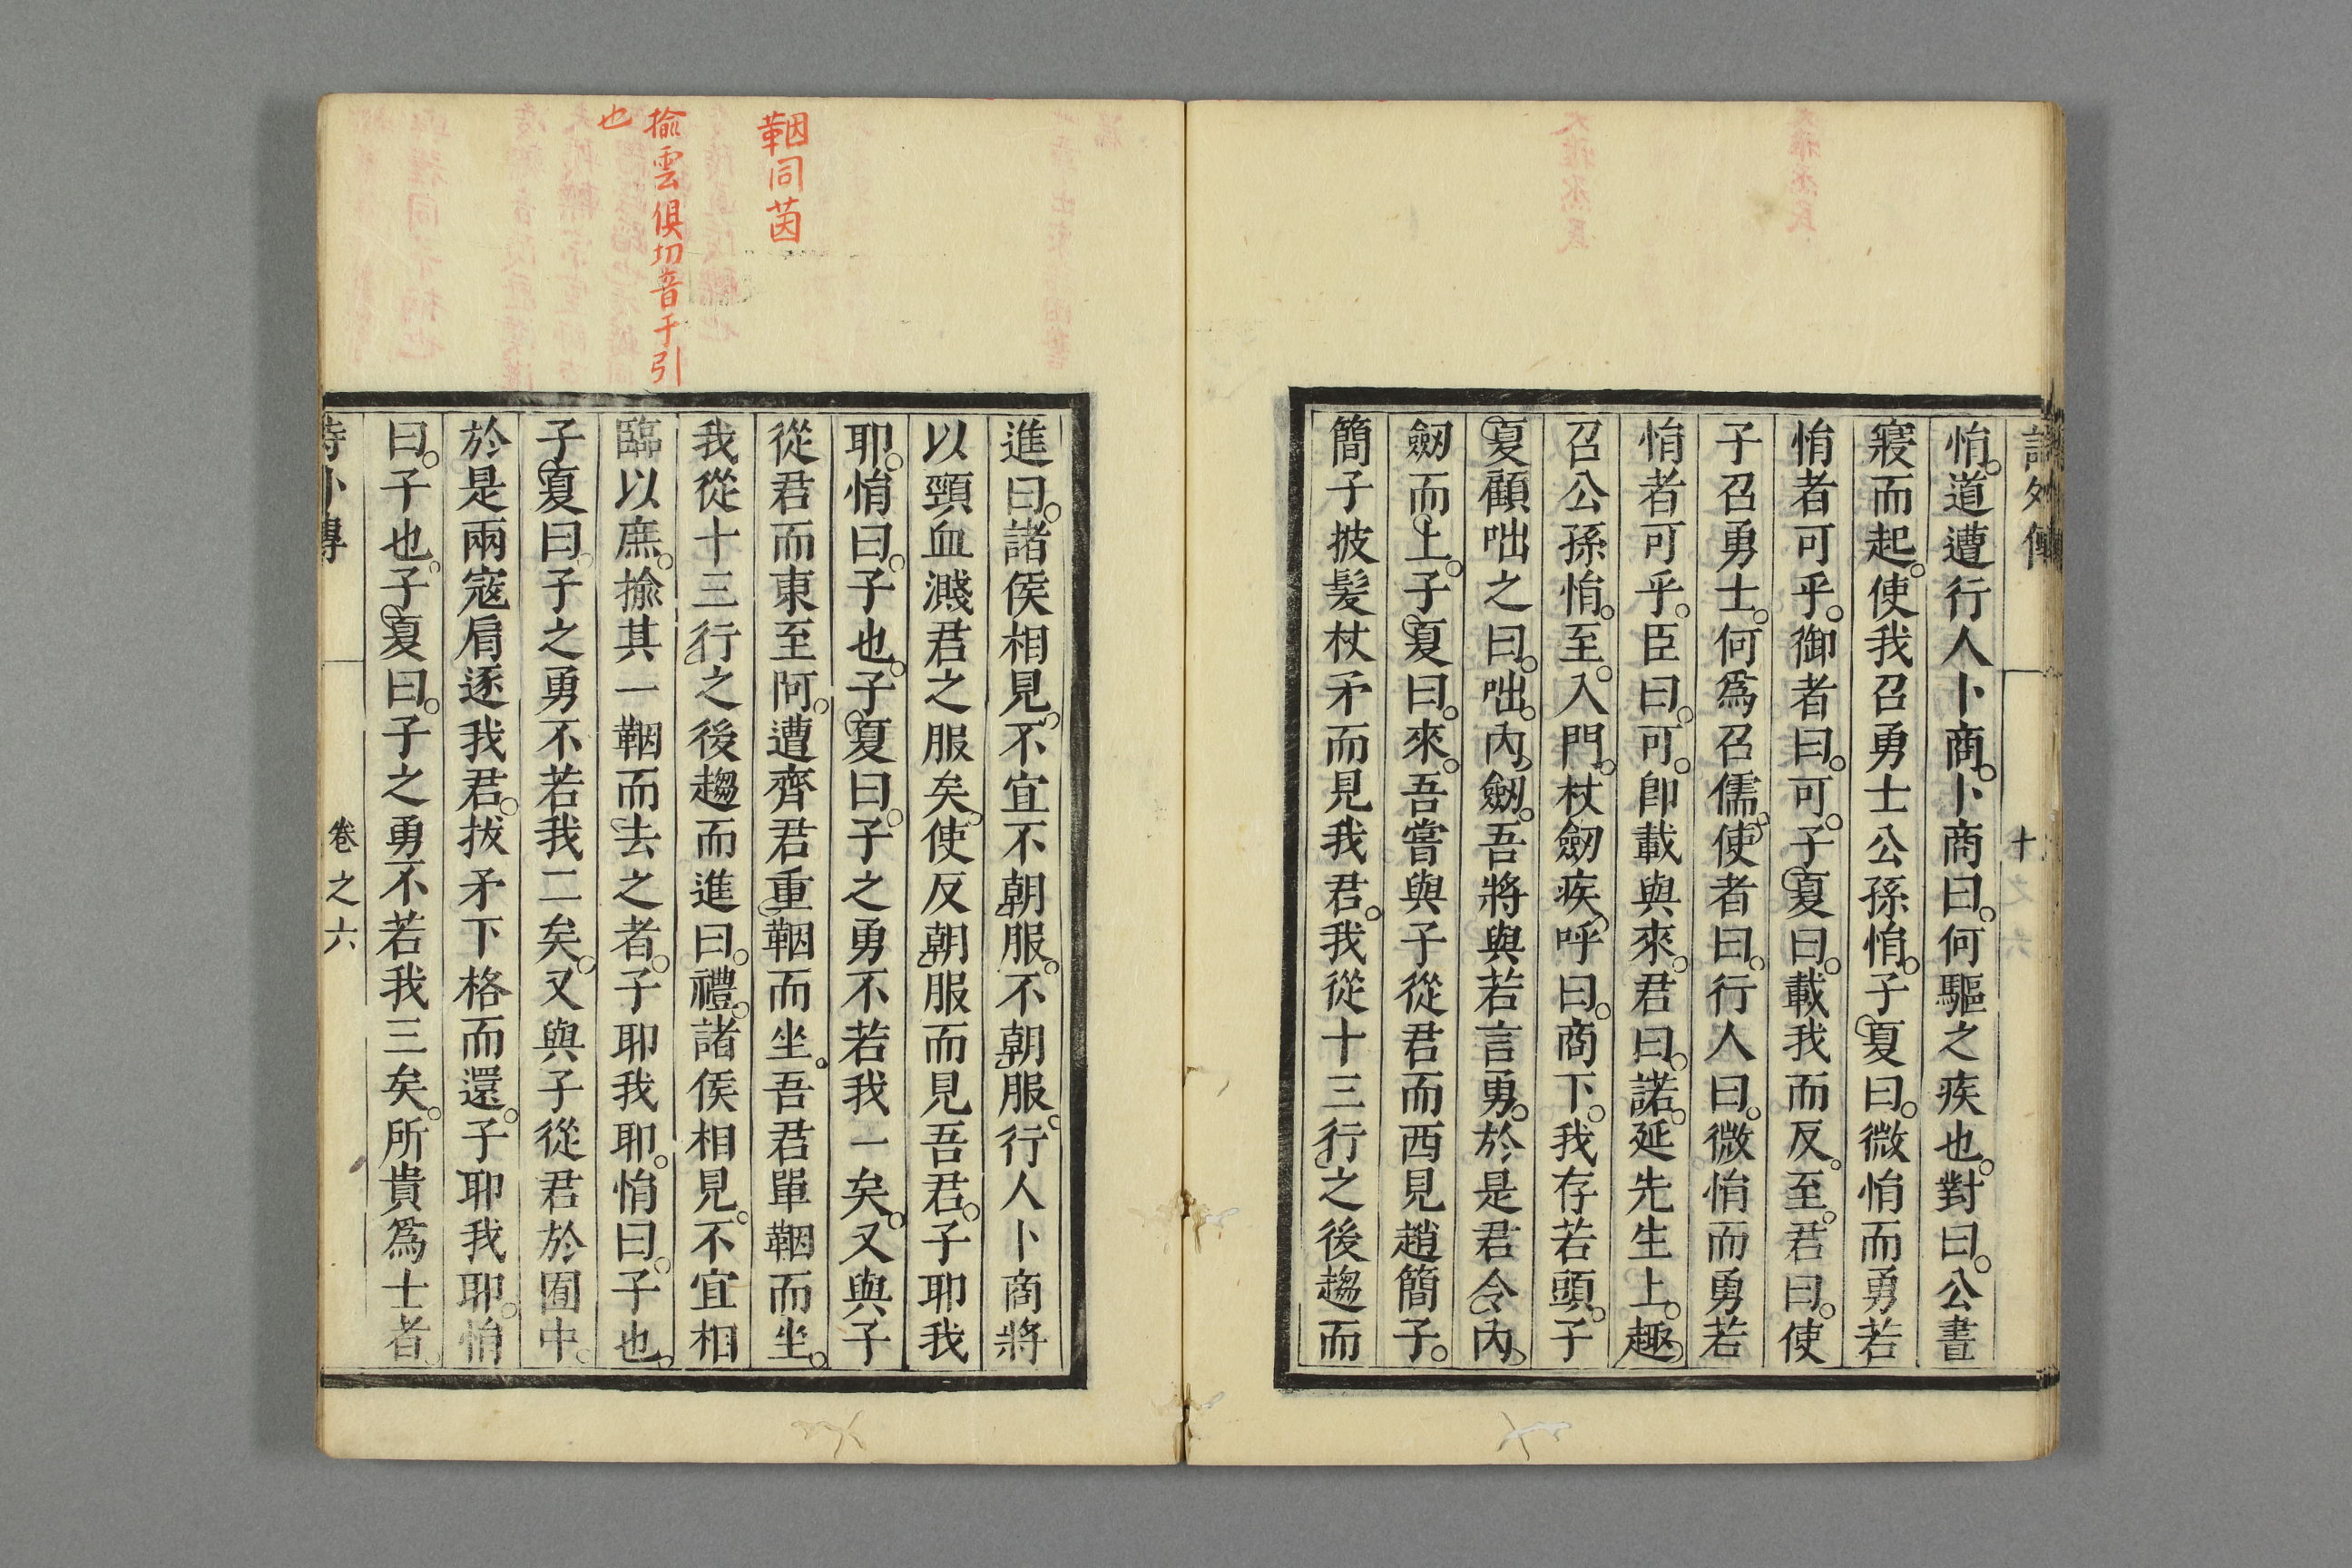 詩外傳
十
悄道遭行人卜商卜商曰何驅之疾也對曰公晝
寢而起使我召勇士公孫悄子夏曰微悄而勇若
悄者可乎御者曰可子夏曰載我而反至君曰使
子召勇士何爲召儒使者曰行人曰微悄而勇若
悄者可乎臣曰可卽載與來君曰諾延先生上趣
召公孫悄至入門杖劒疾呼曰商下我存若頭子
夏顧咄之曰咄內劒吾將與若言勇於是君令內
劒而上子夏曰來吾嘗與子從君而西見趙簡子
簡子披髮杖矛而見我君我從十三行之後趨而
揄雲俱切音于引
也
鞇同茵
進曰諸侯相見不宜不朝服不朝服行人卜商將
以頸血濺君之服矣使反朝服而見吾君子耶我
耶悄曰子也子夏曰子之勇不若我一矣又與子
從君而東至阿遭齊君重鞇而坐吾君單鞇而坐
我從十三行之後趨而進曰禮諸侯相見不宜相
臨以庶揄其一鞇而去之者子耶我耶悄曰子也
子夏曰子之勇不若我二矣又與子從君於囿中
於是兩寇肩逐我君拔矛下格而還子耶我耶悄
曰子也子夏曰子之勇不若我三矣所貴爲士者
詩外傳
卷之六